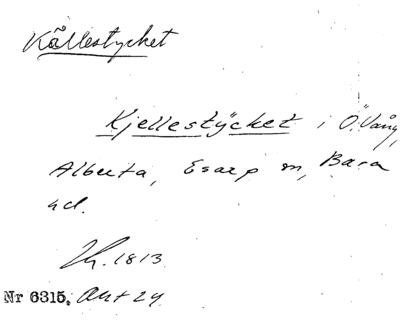 Källestycket
Kjellestÿcket i Ö. Vång,
Alberta, Esarp sn, Bara
hd.
1813
Nr 6315. Akt 24